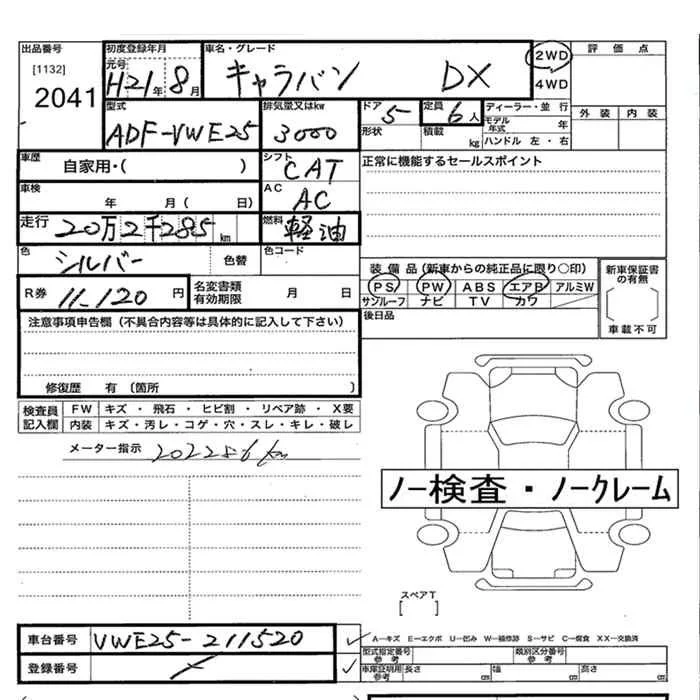 出品番号
[1132]
2041
初度登録年月
元号
H21年 8月
車名・グレード
キャラバン DX
2WD
4WD
評価点
外装 内装
型式
ADF-VWE25
排気量又はkw
3000
ドア
5
形状
定員
6人
積載
kg
ディーラー・並行
モデル年式 年
ハンドル 左・右
車歴
自家用・( )
シフト
CAT
正常に機能するセールスポイント
車検
年 月( 日)
AC
AC
走行
20万2千285 km
燃料
軽油
色
シルバー
色替
色コード
装備品(新車からの純正品に限り○印)
PS PW ABS エアB アルミW
サンルーフ ナビ TV カワ
新車保証書の有無
車載不可
R券
11,120 円
名変書類有効期限
月 日
後日品
注意事項申告欄(不具合内容等は具体的に記入して下さい)
修復歴 有(箇所 )
検査員記入欄
FW キズ・飛石・ヒビ割・リペア跡・X要
内装 キズ・汚レ・コゲ・穴・スレ・キレ・破レ
メーター指示
ノー検査・ノークレーム
スペアT
[ ]
車台番号
VWE25-211520
A―キズ E―エクボ U―凹み W―補修跡 S―サビ C―腐食 XX―交換済
登録番号
型式指定番号
参考
類別区分番号
参考
車庫証明用
参考
長さ cm 幅 cm 高さ cm